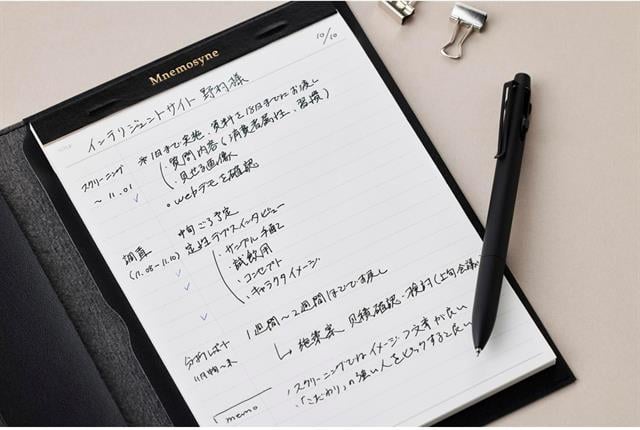 10/10
Mnemosyne
インテリジェントサイト 野村様
スクリーニング
〜11.01
※1日まで実施、資料を18日までにお渡し
・質問内容(消費者属性、習慣)
・見せる画像
・webデモを確認
調査
(11.08-11.10)
中旬ごろ予定
定性デプスインタビュー
・サンプル手配
・試飲用
・コンセプト
・キャラクタイメージ
分析レポート
11月中旬〜末
1週間〜2週間ほどでお戻し
↳ 施策案 見積確認・検討(上旬会議
memo
・スクリーニングではイメージ→文章が良い
・「こだわり」の強い人をピックすると良い